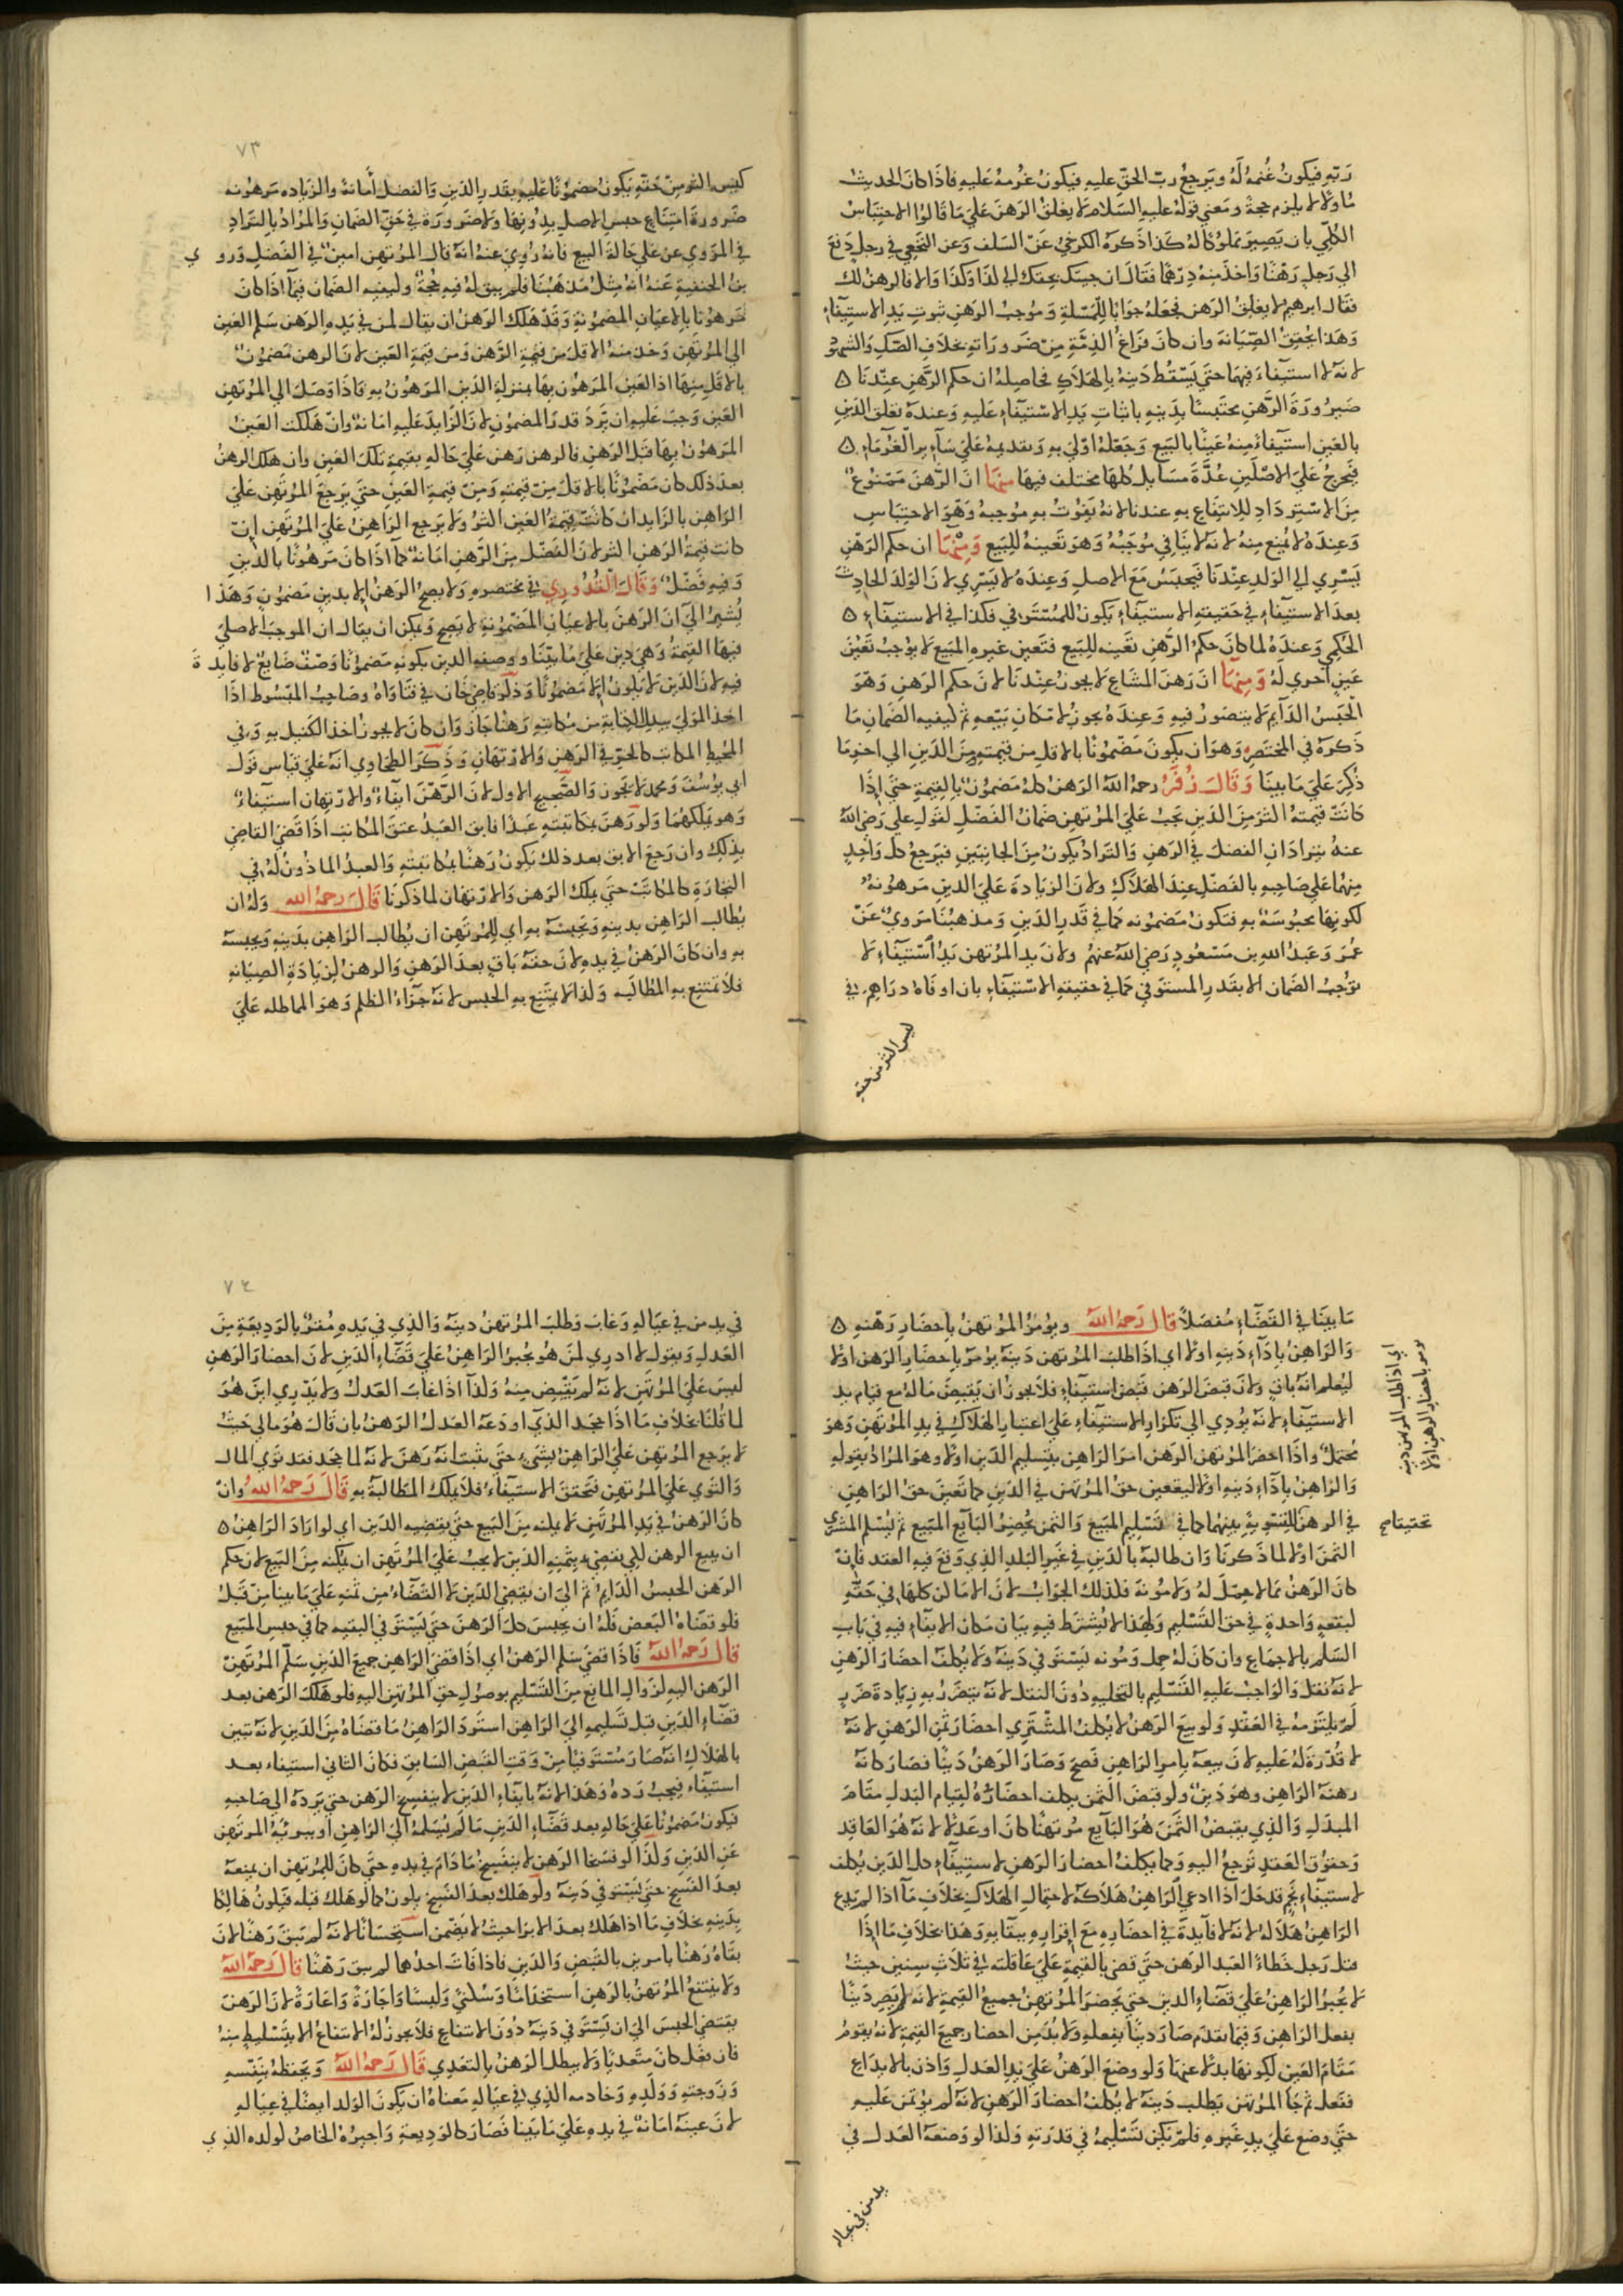 رَبّهِ فيَكونُ غُنمهُ لَهُ وَيَرجعُ رَبّ الحَقِّ عليهِ فيكونُ غُرمهُ عَليهِ فَاذَا كانَ الحَديثُ
مُاوَّلا لا يلزم حجةً وَمعني قَولهُ عليهِ السَلام لا يغلقُ الرَهنَ عَليَ مَا قَالوُا الاحتِبَاسُ
الكُليّ بان يَصِيرَ مَملوكًا لهُ كَذا ذَكرَهُ الكرخيُ عَنِ السَلف وَعن النَخعِي في رجلٍ دَفعَ
الي رَجلٍ رَهْنًا وَاخذَ مِنهُ دِرهَمًا فَقالَ ان جيتك بحقك الي كذَا وَكذَا وَالا فالرهنُ لك
فقَال ابرهيم لا يغلقُ الرَهن فجعَلهُ جوَابًا لِلمسْئلةِ وَمُوجبُ الرَهنِ ثبوت يَدِ الاستِيفَاءِ
وَهَذا يُحققُ الصِّيَانةَ وان كانَ فرَاغُ الذِمَّةِ مِن ضَرورَاتهِ بخلافِ الصّكِ وَالشهُود
لانهُ لا استيفاءَ فيهمَا حَتي يَسْقُط دَينهُ بالهَلاكِ فحَاصِلهُ ان حكم الرّهنِ عنْدنَا
صَيرُورَةَ الرَّهنِ محتَبسًا بِدَينهِ باثباتِ يَدِ الاسْتيفَاءِ عَليهِ وَعندَهُ تعلق الدَينِ
بالعَينِ استيفاءً مِنهُ عَينًا بالبَيع وَجعَلهُ اوْليَ بهِ وتقديمهُ عَليَ سَآيِر الْغُرَمَاءِ
فيَخرجُ عَليَ الاصْلَينِ عُدَّةَ مسَايل كلهَا مختلف فيهَا مِنهَا انَ الرّهنَ مَمنوُعٌ
مِنَ الاسْتِردَادِ لِلانتِفَاعِ بهِ عندنا لانهُ يَفوُت بهِ مُوجبهُ وَهوَ الاحتِبَاسِ
وَعِندَهُ لا يُمنع مِنهُ لانهُ لا ينَافي مُوجَبُهُ وَهوَ تَعينهُ للبَيع وَمِنْهَا ان حكم الرَهنِ
يَسْرِي الي الوَلدِ عنْدَنا فَيحبَسُ مَعَ الاصلِ وَعِندَهُ لا يَسْرِي لانَ الوَلدَ الحَادِثَ
بعدَ الاستيفَاءِ في حَقيقتِهِ الاستيفَاءِ يَكونُ للمُسْتَوفي فكذا في الاستيفَاءِ
الحُكمِي وَعندَهُ لما كانَ حكمُ الرَّهنِ تعَينهُ للبَيع فتَعين غيرهِ للبَيع لا يوُجبُ تعَيُّنَ
عَينٍ اخري لَهُ وَمِنهَا انَ رَهن المشَاع لا يجوزُ عنِدَنا لانَ حكم الرَهنِ وَهوَ
الحَبسُ الدَايم لا يتصَورُ فيهِ وَعِندَهُ يجوزُ لامْكانِ بَيْعهِ ثم كيفيه الضَمانِ مَا
ذَكرَهُ في المختَصِر وَهوَان يكونَ مَضْمونًا بالاقلِ من قيَمتهِ وَمِنَ الدَينِ الي اخرِمَا
ذُكِرَ عَليَ مَا بينَا وَقَالَ زُفَرُ رحمهُ اللهُ الرَهنُ كلهُ مَضمونٌ بالقِيمةِ حَتيَ اذَا
كانَت قِيمتهُ اكثرَ مِنَ الدَينِ يجبُ عَليَ المُرتهنِ ضَمَانُ الفَضْلِ لقَولِ عَلي رَضِيَ اللهُ
عنهُ يترَادَانِ الفضلَ في الرَهنِ وَالترَادُ يكونُ مِنَ الجانِبَينِ فيَرجعُ كل وَاحِدٍ
مِنهمَا عَلي صَاحِبهِ بالفَضْلِ عِندَ الهَلاكِ ولانَ الزيَادَةَ عَليَ الدَينِ مَرهُونةٌ
لكونِهَا محبُوسَةً بهِ فتكون مضمونه كمَا في قَدرِ الدَينِ وَمَذهبُنَا مَرويٌ عَنْ
عُمَرَ وَعَبدُ اللهِ بن مَسْعُودٍ رَضيَ اللهُ عنهُم ولانَ يدَ المرُتهنِ يَدُ اسْتِيفَاءِ لا
توُجبُ الضَمان الا بقَدرِ المستَوفي كمَا في حَقيقتِهِ الاسْتيفَاءِ بان اوفَاهُ درَاهِمَ في
كيس اكثر من حقه
كيس اكثر مِنْ حَقّهِ يَكونُ مضمونًا عَليهِ بقَدرِ الدَينِ وَالفضلُ أمانةٌ والزيَاده مَرهُونه
ضَرورَةَ امتِنَاع حبسِ الاصلِ بدُونِهَا وَلا ضَرورَةَ في حَقّ الضَمانِ وَالمرَادُ بالترَادِ
في المرَوي عن عَلي حَالةَ البَيع فانهُ رُويَ عنهُ انهُ قالَ المرُتهِن امينٌ في الفَضلِ وَروي
بنُ الحنفيةِ عَنهُ انهُ مِثلُ مَذهَبُنَا فلم يبق لهُ فيهِ حُجّةٌ وكيفيه الضَمان فيمَا اذَا كانَ
مَرهُونًا بالاعيَانِ المضمُونةِ وَقدْ هَلكَ الرَهنُ ان يقَال لمن في يَدهِ الرَهن سَلم العَين
الي المرُتهِن وَخذ مِنهُ الاقلَ مِن قيمَةِ الرَّهنِ وَمن قيمَةِ العَين لانَ الرهن مَضمُونٌ
بالاقَلِ مِنهمَا اذ العَين المرَهوُن بهَا بمنزلةِ الدَينِ المَرهوُن بهِ فاذَا وَصَلَ الي المُرتهِنِ
العَينِ وَجبَ عَليهِ ان يَرُدَ قدرَ المضمُونِ لانَ الزَايدَ عَليهِ امَانهٌ وان هَلكت العَينُ
المرَهُونُ بهَا قبلَ الرَهنِ فالرهن رَهن عَليَ حَالهِ بقيمةِ تلكَ العَينِ وان هلكَ الرهنُ
بعدَ ذلكَ كان مَضمونًا بالاقلِ مِنْ قيمَتهِ وَمِنْ قيمةِ العَينِ حتيَ يَرجعَ المُرتَهِن عَليَ
الرَاهِنِ بالزَايدِ ان كانَت قيمَةُ العَينِ اكثرُ وَلا يَرجع الرَاهِنُ عَليَ المُرتَهِنِ ان
كانت قيمَةُ الرَهنِ اكثر لانَ الفَضْلَ مِنَ الرَّهنِ امَانهٌ كمَا اذَا كانَ مَرهُونًا بالدَينِ
وَفيهِ فَضْلٌ وَقَالَ القُدُورِي في مختصرهِ وَلا يصِح الرَهنُ إلا بدَينٍ مَضمُونٍ وَهَذا
يُشيرُ الي انَ الرَهنَ بالاعيَانِ المضمُونةِ لا يَصِح وَيمكن ان يقالَ ان الموجبَ الاصليَ
فيهَا القيمةُ وَهيَ دَين عَليَ مَا بيّنَا ووصفهِ الدين بكونهِ مَضمونًا وَصْفٌ ضَايعٌ لا فايدةَ
فيهِ لانَ الدَينَ لا يكونُ إلا مَضمونًا وَذكرَ قاضي خَان في فتَاوَاهُ وصَاحِبُ المبسُوط اذَا
اخذَ المَوليَ ببدلِ الكتابةِ من مُكاتبهِ رَهنًا جَازَ وَان كانَ لا يجوزُ اخذ الكَفيل بهِ وَفي
المحُيطِ المكاتب كالحرِّ في الرَهنِ وَالارْتهَانِ وَذَكرَ الطحَاوِي انهُ عَليَ قيَاس قَول
ابي يُوسُفَ وَمحمد لا يجَوز وَالصَّحيح الاول لانَ الرّهْنَ ايفَاءٌ والارتِهان استيفاءٌ
وَهوَ يَملكهُمَا وَلو رَهنَ بمكاتبتهِ عَبدًا فابق العَبدُ عتقَ المُكاتب اذَا قَضيَ القاضِي
بذلِكَ وان رَجعَ الابقُ بعد ذلك يكونُ رَهنًا بمكاتبتهِ وَالعبدُ الماذُونُ لهُ في
التجَارَةِ كالمُكاتَبِ حَتيَ يملكَ الرَهن وَالارْتهَان لماذكرنَا قَالَ رَحِمهُ الله وَلهُ ان
يُطالب الرَاهِن بدينهِ وَيَحبسَهُ بهِ اي للِمُرتَهِن ان يُطالب الرَاهِن بدَينهِ وَيحبِسهُ
بهِ وان كانَ الرَهنُ في يدهِ لانَ حقهُ باقٍ بعدَ الرَهنِ وَالرهنُ لزيَادَةِ الصيَانهِ
فَلا تمتنِع بهِ المطُالبَه وَلذا لا يمتَنِع بهِ الحبس لانهُ جَزاءُ الظلم وَهوَ المماطله عَليَ
مَا بينَا في القَضَاءِ مُفصَلاً قَالَ رَحمهُ اللهُ ويؤمَرُ المرُتهنُ بإحضَارِ رَهْنهِ
وَالرَاهِنُ بأِدَاءِ دَينهِ اوَلًا اي اذَا طلبَ المُرتهن دَينَهُ يؤمَرُ بإحضَارِ الرَهن اوَلا
ليُعلم انهُ باقٍ وَلانَ قبضَ الرَهن قبضُ استيفَاءِ فلا يجوزُ ان يَقبِضَ مَالهُ مع قيامِ يدِ
الاستيفَاءِ لانهُ يُؤدِي الي تكرَارِ الاستيفَاءِ عَليَ اعتبارِ الهَلاكِ في يدِ المُرتَهِن وَهوَ
مُحتملٌ وَاذَا احضرَ المُرتهنُ الرَهن امرَ الرَاهِن بتسِليمِ الدَينِ اوَلا وهوَ المرَادُ بقولهِ
وَالرَاهِنُ بأِدَاءِ دَينهِ اولًا ليتعين حقُ المُرتهِن في الدَينِ كمَا تَعَينَ حقُ الرَاهِنِ
في الرهن تحقيقا للتسوِيةِ بينهمَا كمَا في تَسْليِم المبَيع وَالثَمنِ يُحضِرُ البَايعُ المبَيع ثم يُسَلمِ المشترِي
الثَمنَ اوَلًا لماذَكرنَا وَان طالبَهُ بالدَينِ في غَيرِ البَلدِ الذِي وَقعَ فيهِ العَقد فانْ
كانَ الرَهنُ مَما لا حِملَ لهُ وَلا مُؤنةَ فكذلكَ الجَوَابُ لانَ الامَاكنَ كلهَا في حَقهِ
لبقعهٍ وَاحدةٍ في حقِ التَسْليم وَلهَذا لا يُشترَط فيهِ بيَان مَكانِ الايفَاءِ فيهِ في بَابِ
السَلمِ بالاجمَاعِ وان كانَ لهُ حِمل وَمُونه يَسْتَوفي دَينَهُ وَلا يُكلفُ احضَارَ الرَهنِ
لانهُ نقل وَالوَاجبُ عَليهِ التَسْليم بالتخليهِ دُونَ النقل لانهُ يتضَرَرُ بهِ زيَادَةَ ضَرَرٍ
لَمْ يلتَزمهُ في العَقْدِ وَلو بيعَ الرَهنُ لا يُكلفُ المشْتَرِي احضَارَ ثمنِ الرَهنِ لانهُ
لا قُدْرَةَ لهُ عَليهِ لانَ بيعهُ بامرِ الرَاهِنِ فَصحَ وَصَارَ الرَهنُ دَينًا فصَارَ كانهُ
رهنهُ الرَاهِن وهوَ دَينٌ وَلو قبَضَ الثمنَ يكلف احضَارَهُ لقيام البَدلِ مَقامَ
المبدَلِ وَالذِي يقبِضُ الثَمَنَ هُوَ البَايع مُرتهنًا كانَ اوعَدْلًا لانهُ هُوَ العَاقِد
وَحقوُق العَقدِ تَرجعُ اليهِ وَكما يكلفُ احضارَ الرَهنِ لاستِيفَاءِ كل الدَين يُكلف
لاستيفَاءِ نجمٍ قدحَلَ اذَا ادعي الرَاهِنُ هَلاكَهُ لاحتِمالِ الهَلاكِ بخلافِ مَا اذَا لم يَدعِ
الرَاهِنُ هَلاكَهُ لانهُ لا فآيِدَةَ في احضَارِهِ مَعَ إقرَارِهِ ببقَائِهِ وَهَذا بخلافِ مَا اذَا
قتلَ رَجل خَطاءً العَبد الرَهن حَتي قضي بالقيمةِ عَليَ عَاقلتهِ في ثلاثِ سِنينَ حيثُ
لا يُجبرُ الرَاهِنُ عَليَ قضَاءِ الدين حَتي يَحضرَ المُرتَهِن جميعُ القيمةِ لانهُ لم يَصِر دَينًا
بفعل الرَاهِن وَفيمَا تقدَم صَارَ دَينًا بفعلهِ وَلا بُدَ مِن احضار جميعَ القيمةِ لانهُ يقومُ
مَقامَ العَينِ لكونهَا بدلًا عنهَا وَلو وضعَ الرَهنُ عَليَ يَدِ العَدلِ وَاذن بالايدَاعِ
ففعَل ثم جَا المُرتهن يَطلب دَينَهُ لا يُكلفُ احضَارَ الرَهنِ لانهُ لَم يؤتمَن عَليه
حَتي وضع عَلي يدِ غَيرِهِ فلَم يكن تَسْليمهُ في قدرَتهِ وَلذا لو وَضعَهُ العَدل في
يد من في عياله
اي اذا طلب المرتهن دينه
يومر باحضار الرهن اولا
تحقيقا صح
في يد من في عيَالهِ وَغابَ وَطلبَ المُرتهنُ دينَهُ وَالذِي في يَدِهِ مُقرٌ بالوَدِيعَةِ مِنَ
العَدلِ وَيقولُ لا ادرِي لمَن هُوَ يُجبرُ الرَاهِنُ عَليَ قَضَاءِ الدَينِ لانَ احضَارَ الرَهنِ
ليسَ عَليَ المُرتَهِنِ لانهُ لم يَقْبِض مِنهُ وَلذَا اذَا غَابَ العَدلُ وَلا يَدْرِي اينَ هُوَ
لما قُلنَا بخلافِ مَا اذَا جَحَد الذي اودَعَهُ العَدلُ الرَهنُ بان قَالَ هُوَ مَالي حَيثُ
لا يرجعَ المُرتهِن عَليَ الرَاهِن بشَيءٍ حَتيَ يثبتَ انهُ رَهنَ لانهُ لما جحدَ فقد تَوي المال
وَالتَوي عَليَ المُرتهِن فتحققَ الاستيفَاءُ فلا يَملكَ المطَالبَةُ بهِ قَالَ رَحمهُ اللهُ وَانْ
كانَ الرَهنُ في يَدِ المُرتَهِنِ لا يمكنه مِنَ البَيعِ حَتي يقضِيه الدَين اي لو ارَادَ الرَاهِنُ
ان يبيع الرهن لكي يقضي بثمنِهِ الدَينَ لا يجبُ عَليَ المُرتَهِن ان يمكنه مِنَ البَيع لانَ حكم
الرَهنِ الحبسُ الدَايمُ ثم اليَ ان يقبضَ الدَين لا القَضَاءُ مِن ثمنهِ عَليَ مَا بينَا مِن قَبلُ
فلو قضَاهُ البَعضَ فلهُ ان يحبسَ كلَ الرَهنَ حَتي يَستوفي البقيه كما في حبسِ المَبيع
قالَ رَحمهُ اللهُ فَاذَا قضَي سَلم الرَهنُ اي اذَا قضي الرَاهِن جميعَ الدَينِ سَلّم المُرتَهِنُ
الرهن اليهِ لزوَالِ المانعِ مِنَ التَسْليم بوصُولِ حقِ المُرتهِنِ اليهِ فلو هَلكَ الرَهن بعد
قضَاءِ الدَينِ قبلَ تَسليمهِ اليَ الرَاهِن استردَ الرَاهِنُ مَا قضَاهُ مِنَ الدَينِ لانهُ تبين
بالهَلاكِ انهُ صَارَ مُسْتَوفيًا مِنْ وَقتِ القَبضِ السَابقِ فكانَ الثاني استيفاء بعد
استيفَاء فيجبُ رَدهُ وَهَذا لانهُ بايفَاءِ الدَينِ لا ينفسِخ الرَهن حتيَ يَردَهُ الي صَاحِبهِ
فيَكونُ مَضمونًا عَليَ حَالهِ بعد قَضَاءِ الدَينِ مَا لَم يُسَلمهُ اليَ الرَاهِنِ او يبرئهُ المرتهِن
عَنِ الدَينِ وَلذَا لو فسَخَا الرَهنِ لا ينفَسخُ مَا دَامَ في يدهِ حَتَي كانَ للِمُرتهنِ ان يمنعهُ
بعدَ الفَسْخِ حَتيَ يَسْتَوفي دَينَهُ ولو هَلك بعدَ الفَسْخِ يكون كمَا لو هَلك قبله فيَكونُ هَالِكًا
بدَينهِ بخلافِ مَا اذَا هَلكَ بعدَ الابرَا حيثُ لا يَضمن اسْتِحْسَانًا لانهُ لَم يَبقَ رَهنًا لانَ
بقاهُ رَهنًا بامرينِ بالقبَضِ وَالدَينِ فاذا فاتَ احدُهما لم يبق رَهْنًا قَالَ رَحمهُ اللهُ
وَلا ينتَفعُ المُرتهِنُ بالرَهنِ استخدَامًا وَسُكنَي وَلبسًا وَاجارَةً وَاعَارَةً لانَ الرَهنَ
يقتضي الحبسَ الي ان يَسْتَوفي دَينَهُ دُونَ الانتفاعِ فَلا يجوزُ لهُ الانتفاعُ الا بِتَسْليطٍ مِنهُ
فان فعَلَ كانَ متعديًا وَلا يبطل الرَهنُ بالتعَدِي قالَ رَحمَهُ اللهُ وَيحفظهُ بنَفسهِ
وَزَوجتهِ وَوَلَدهِ وَخادمهِ الذِي في عيَالهِ مَعناهُ ان يكونَ الوَلد ايضًا في عيَالهِ
لانَ عينهُ امَانةٌ في يدهِ عَليَ مَا بَينا فَصَارَ كالوَدِيعةِ وَاجيرُهُ الخاصُ كولده الذِي
٧٣
٧٤